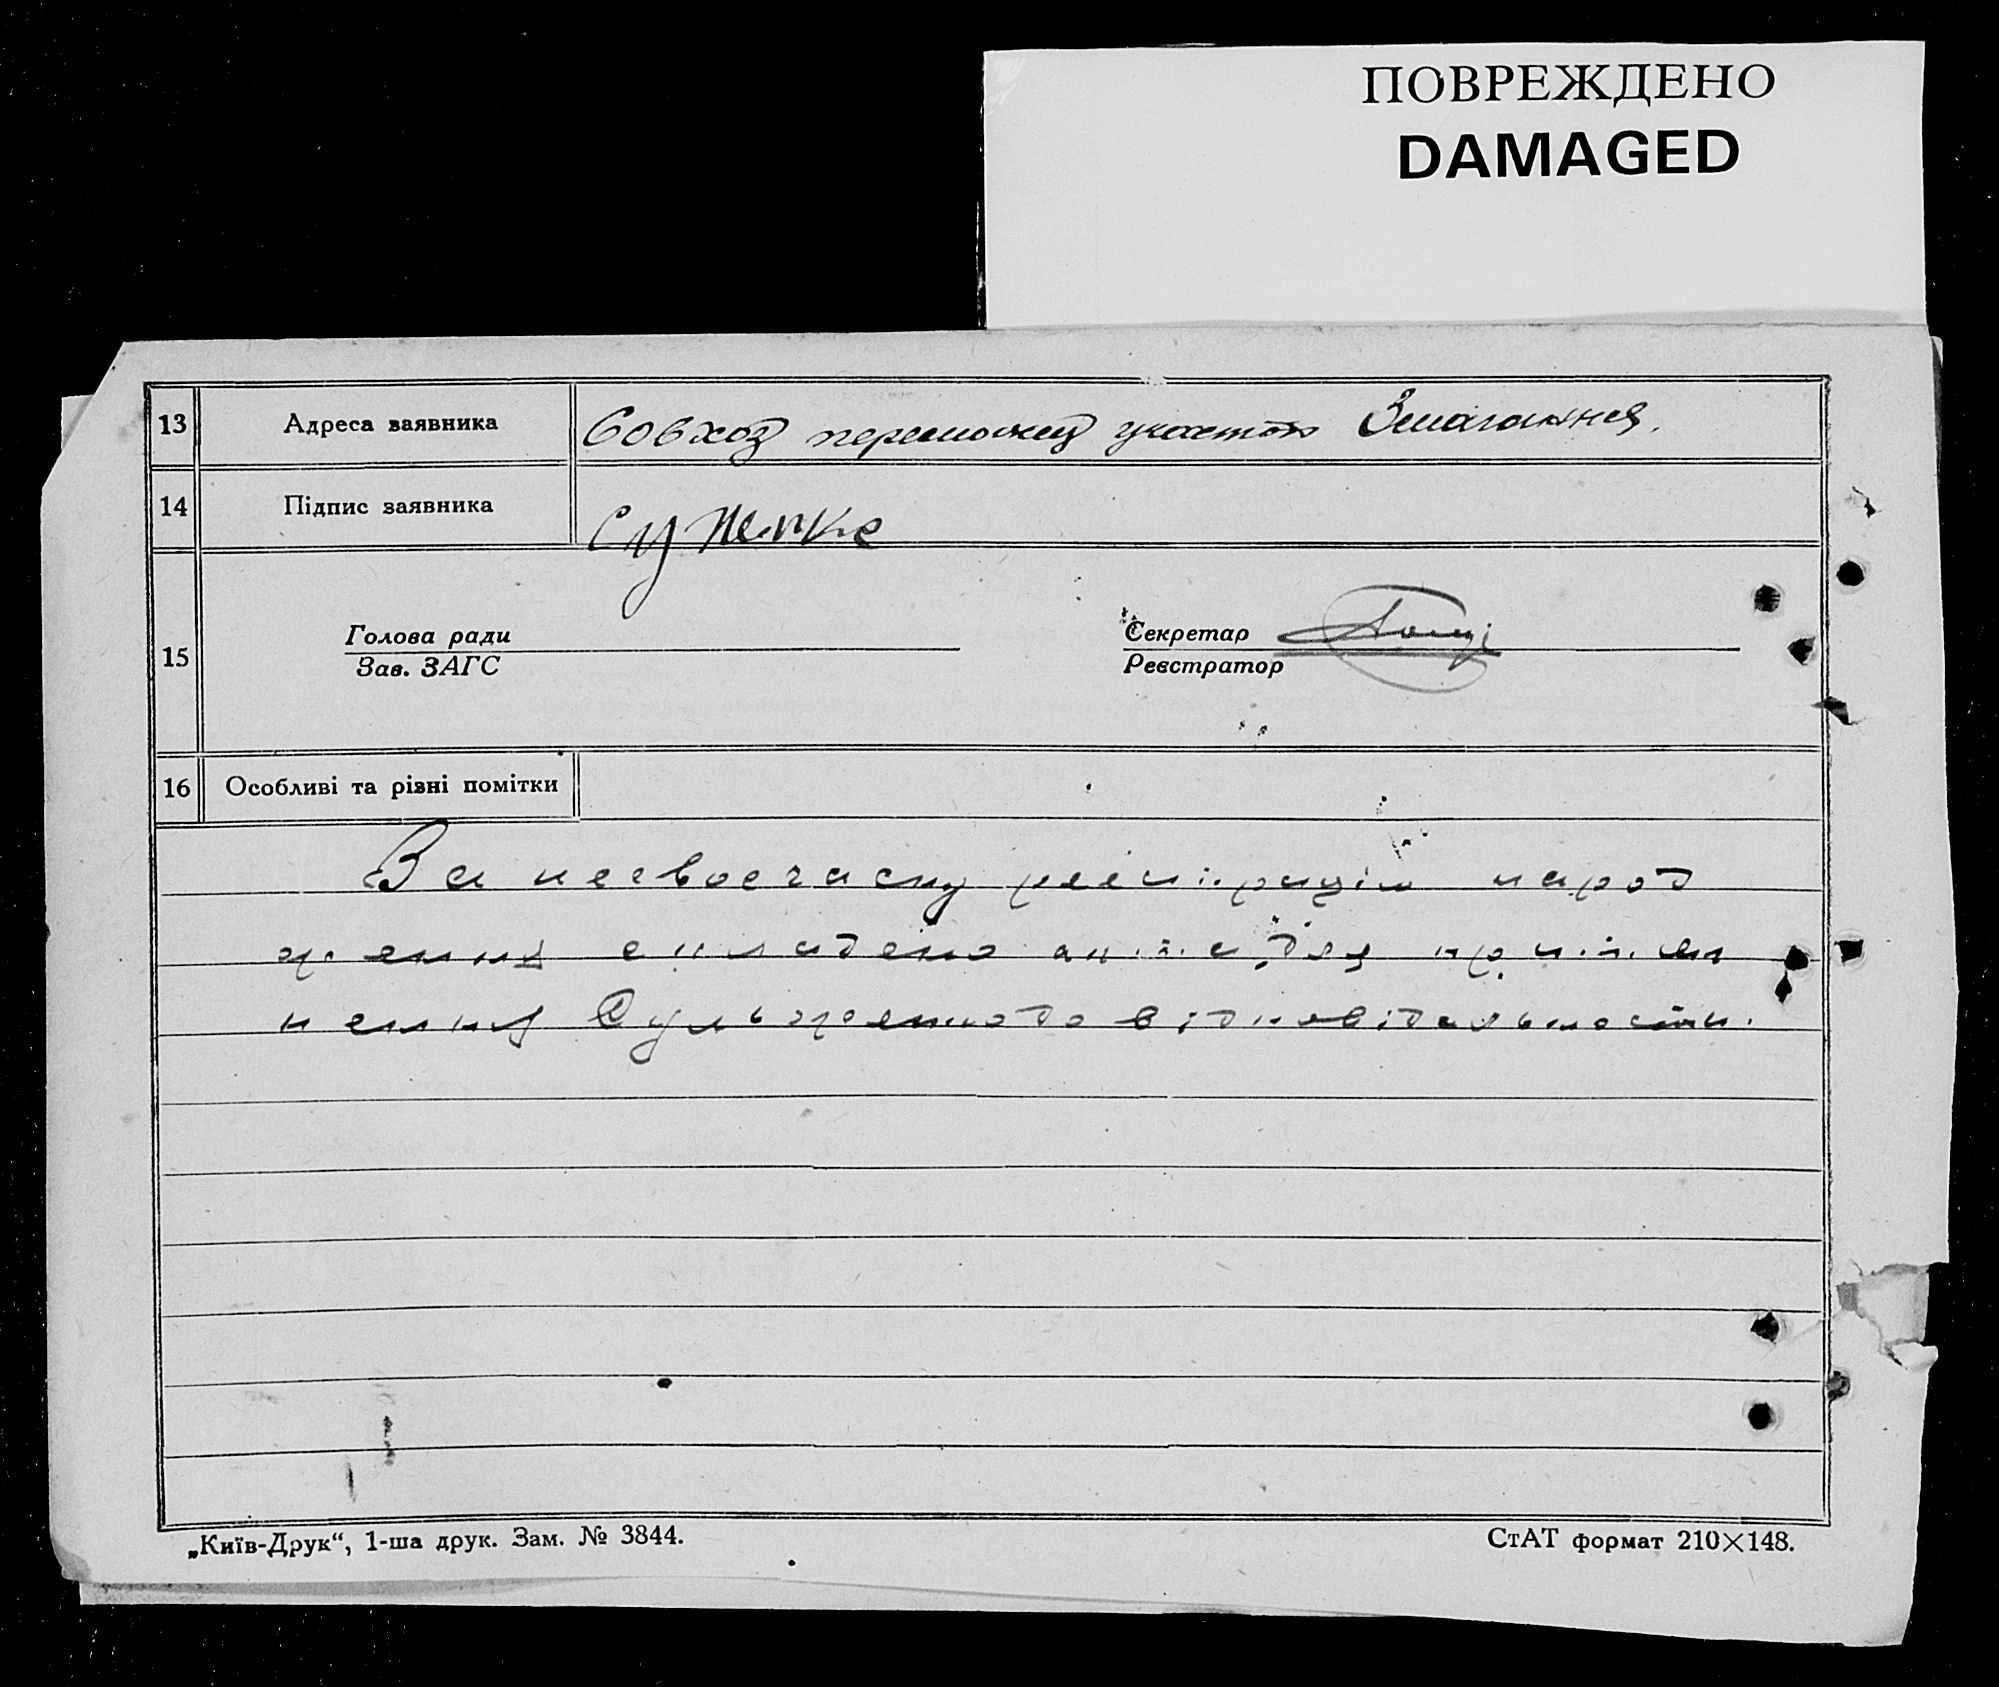 ПОВРЕЖДЕНО
DAMAGED
13 Адреса заявника Совхоз переможец участок Змагання.
14 Підпис заявника
15 Голова ради Секретар
Зав. ЗАГС Реєстратор
16 Особливі та різні помітки
За несвоечасну реєстрацію народ
ження складено акт для притяг
нення до відповідальности.
„Київ-Друк“, 1-ша друк. Зам. № 3844.
СтАТ формат 210×148.